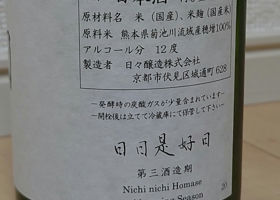 日本酒
原材料名 米（国産）、米麹（国産米）
原料米 熊本県菊池川流域産穂増100%
アルコール分 12度
製造者 日々醸造株式会社
京都市伏見区城通町628
―発酵時の炭酸ガスが少量含まれています―
―開栓後は立てて冷蔵庫にて保管して下さい―
日日是好日
第三酒造期
Nichi nichi Homase
Season